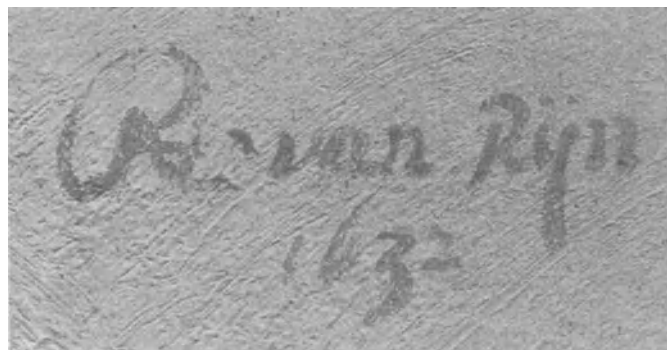 R. van Rijn
1632